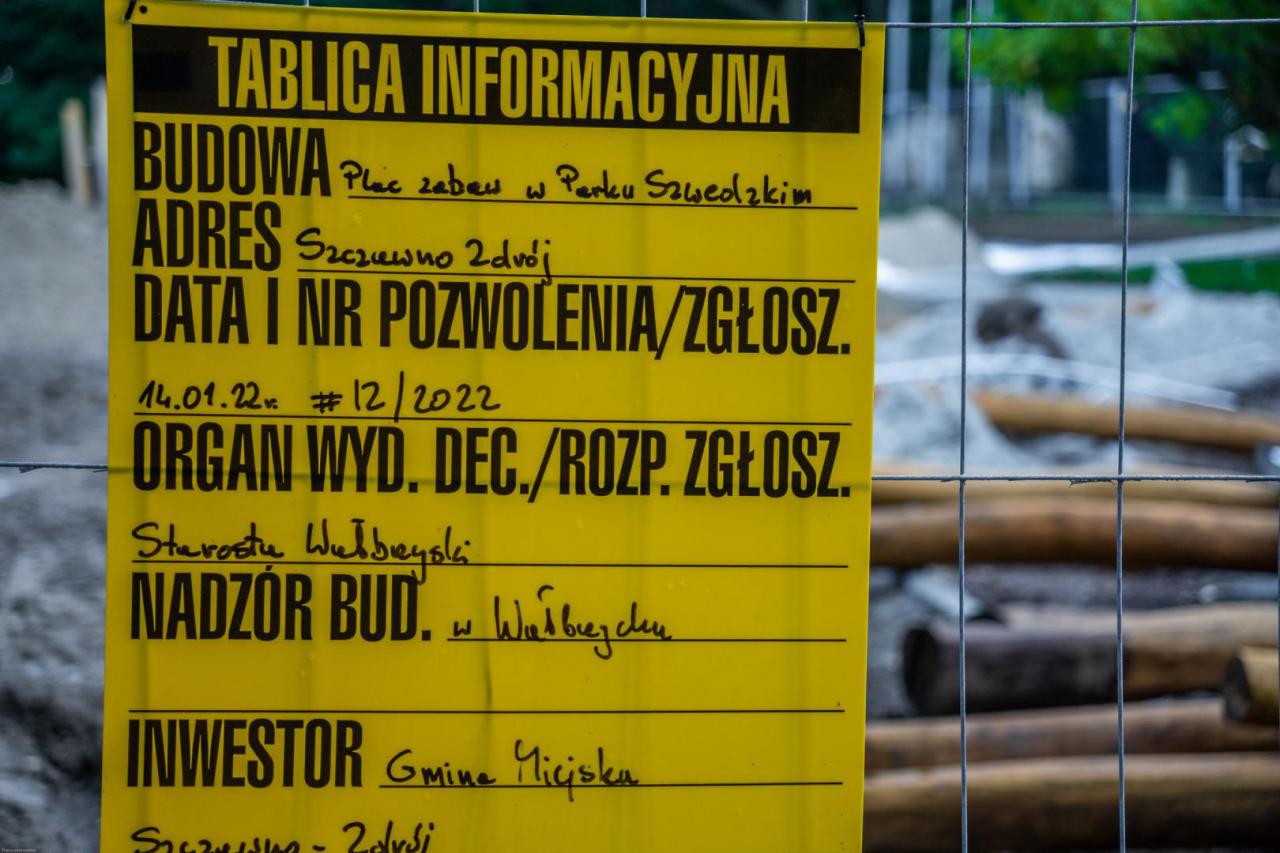 TABLICA INFORMACYJNA
BUDOWA Plac zabaw w Parku Szwedzkim
ADRES Szczawno Zdrój
DATA I NR POZWOLENIA/ZGŁOSZ.
14.01.22r. #12/2022
ORGAN WYD. DEC./ROZP. ZGŁOSZ.
Starosta Wałbrzyski
NADZÓR BUD. w Wałbrzychu
INWESTOR Gmina Miejska
Szczawno - Zdrój